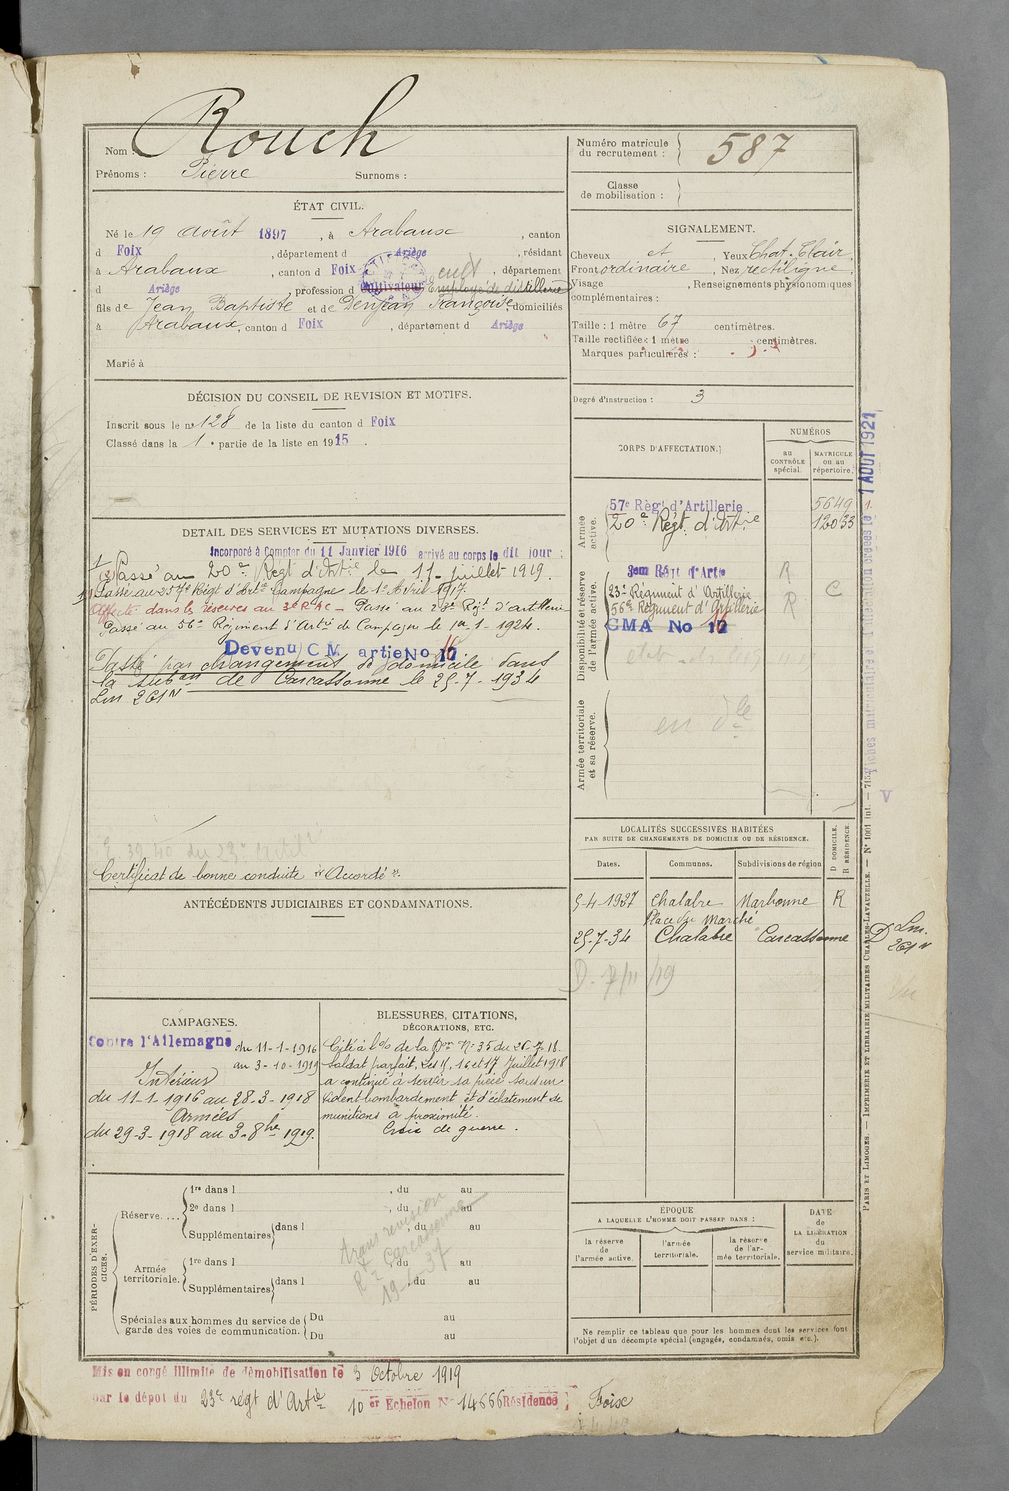 Nom : Rouch
Prénoms : Pierre Surnoms :
ÉTAT CIVIL.
Né le 19 août 1897, à Arabaux, canton
d Foix, département d Ariège, résidant
à Arabaux, canton d Foix, département
d Ariège, profession d cultivateur Employé de distillerie
fils de Jean Baptiste et de Denjean Françoise, domiciliés
à Arabaux, canton d Foix, département d Ariège
Marié à
DÉCISION DU CONSEIL DE REVISION ET MOTIFS.
Inscrit sous le no 128 de la liste du canton d Foix
Classé dans la 1e partie de la liste en 1915.
DÉTAIL DES SERVICES ET MUTATIONS DIVERSES.
Incorporé à compter du 11 Janvier 1916 arrivé au corps le dit jour ;
Passé au 20e Régt d'Artie le 11 juillet 1919.
Passé au 57e Régt d'Artie Campagne le 1er Avril 1917.
Affecté dans les réserves au 3e R.A.C – Passé au 23e Régt d'artillerie
Passé au 56e Régiment d'Artie de Campagne le 1er-1-1924.
Devenu C M artie No 16
Passé par changement de domicile dans
la subon de Carcassonne le 25-7-1934
Lm 261 N
Certificat de bonne conduite "Accordé".
ANTÉCÉDENTS JUDICIAIRES ET CONDAMNATIONS.
CAMPAGNES.
Contre l'Allemagne du 11-1-1916
au 3-10-1919
Intérieur
du 11-1-1916 au 28-3-1918
Armées
du 29-3-1918 au 3-8bre 1919.
BLESSURES, CITATIONS,
DÉCORATIONS, ETC.
Cité à l'o/o de la Don No 35 du 26-7-18.
Soldat parfait, les 15, 16 et 17 Juillet 1918
a continué à servir sa pièce sous un
violent bombardement et d'éclatement de
munitions à proximité.
Croix de guerre.
PÉRIODES D'EXERCICES.
Réserve. ...
1re dans l , du au
2e dans l , du au
Supplémentaires dans l , du au
Armée territoriale.
1re dans l , du au
Supplémentaires dans l , du au
Spéciales aux hommes du service de garde des voies de communication.
Du au
Du au
trans revision
Rce Carcassonne
Numéro matricule du recrutement : 587
Classe de mobilisation :
SIGNALEMENT.
Cheveux ct, Yeux Chat. Clair
Front ordinaire, Nez rectiligne,
Visage , Renseignements physionomiques
complémentaires :
Taille : 1 mètre 67 centimètres.
Taille rectifiée : 1 mètre centimètres.
Marques particulières :
Degré d'instruction : 3
CORPS D'AFFECTATION.
NUMÉROS
au CONTRÔLE spécial.
MATRICULE ou au répertoire.
Armée active.
57e Régt d'Artillerie 5649
20e Régt d'Artie 12033
Disponibilité et réserve de l'armée active.
3em Régt d'Artie R
23e Régiment d'Artillerie C
56e Régiment d'Artillerie R
CMA No 16
Armée territoriale et sa réserve.
en dle
LOCALITÉS SUCCESSIVES HABITÉES
PAR SUITE DE CHANGEMENTS DE DOMICILE OU DE RÉSIDENCE.
Dates. Communes. Subdivisions de région D DOMICILE. R RÉSIDENCE.
5-4-1927 Chalabre Narbonne R
Place du Marché
25-7-34 Chalabre Carcassonne D Lm. 261 N
ÉPOQUE
A LAQUELLE L'HOMME DOIT PASSER DANS :
la réserve de l'armée active.
l'armée territoriale.
la réserve de l'armée territoriale.
DATE de LA LIBÉRATION du service militaire.
Ne remplir ce tableau que pour les hommes dont les services font
l'objet d'un décompte spécial (engagés, condamnés, omis etc.).
Mis en congé illimité de démobilisation le 3 Octobre 1919
par le dépôt du 23e régt d'Artie 10er Echelon No 14666 Résidence : Foix
Fiches matriculaire et d'affectation créées le 1 AOUT 1921
PARIS ET LIMOGES. — IMPRIMERIE ET LIBRAIRIE MILITAIRES CHARLES-LAVAUZELLE. — No 1001 int.